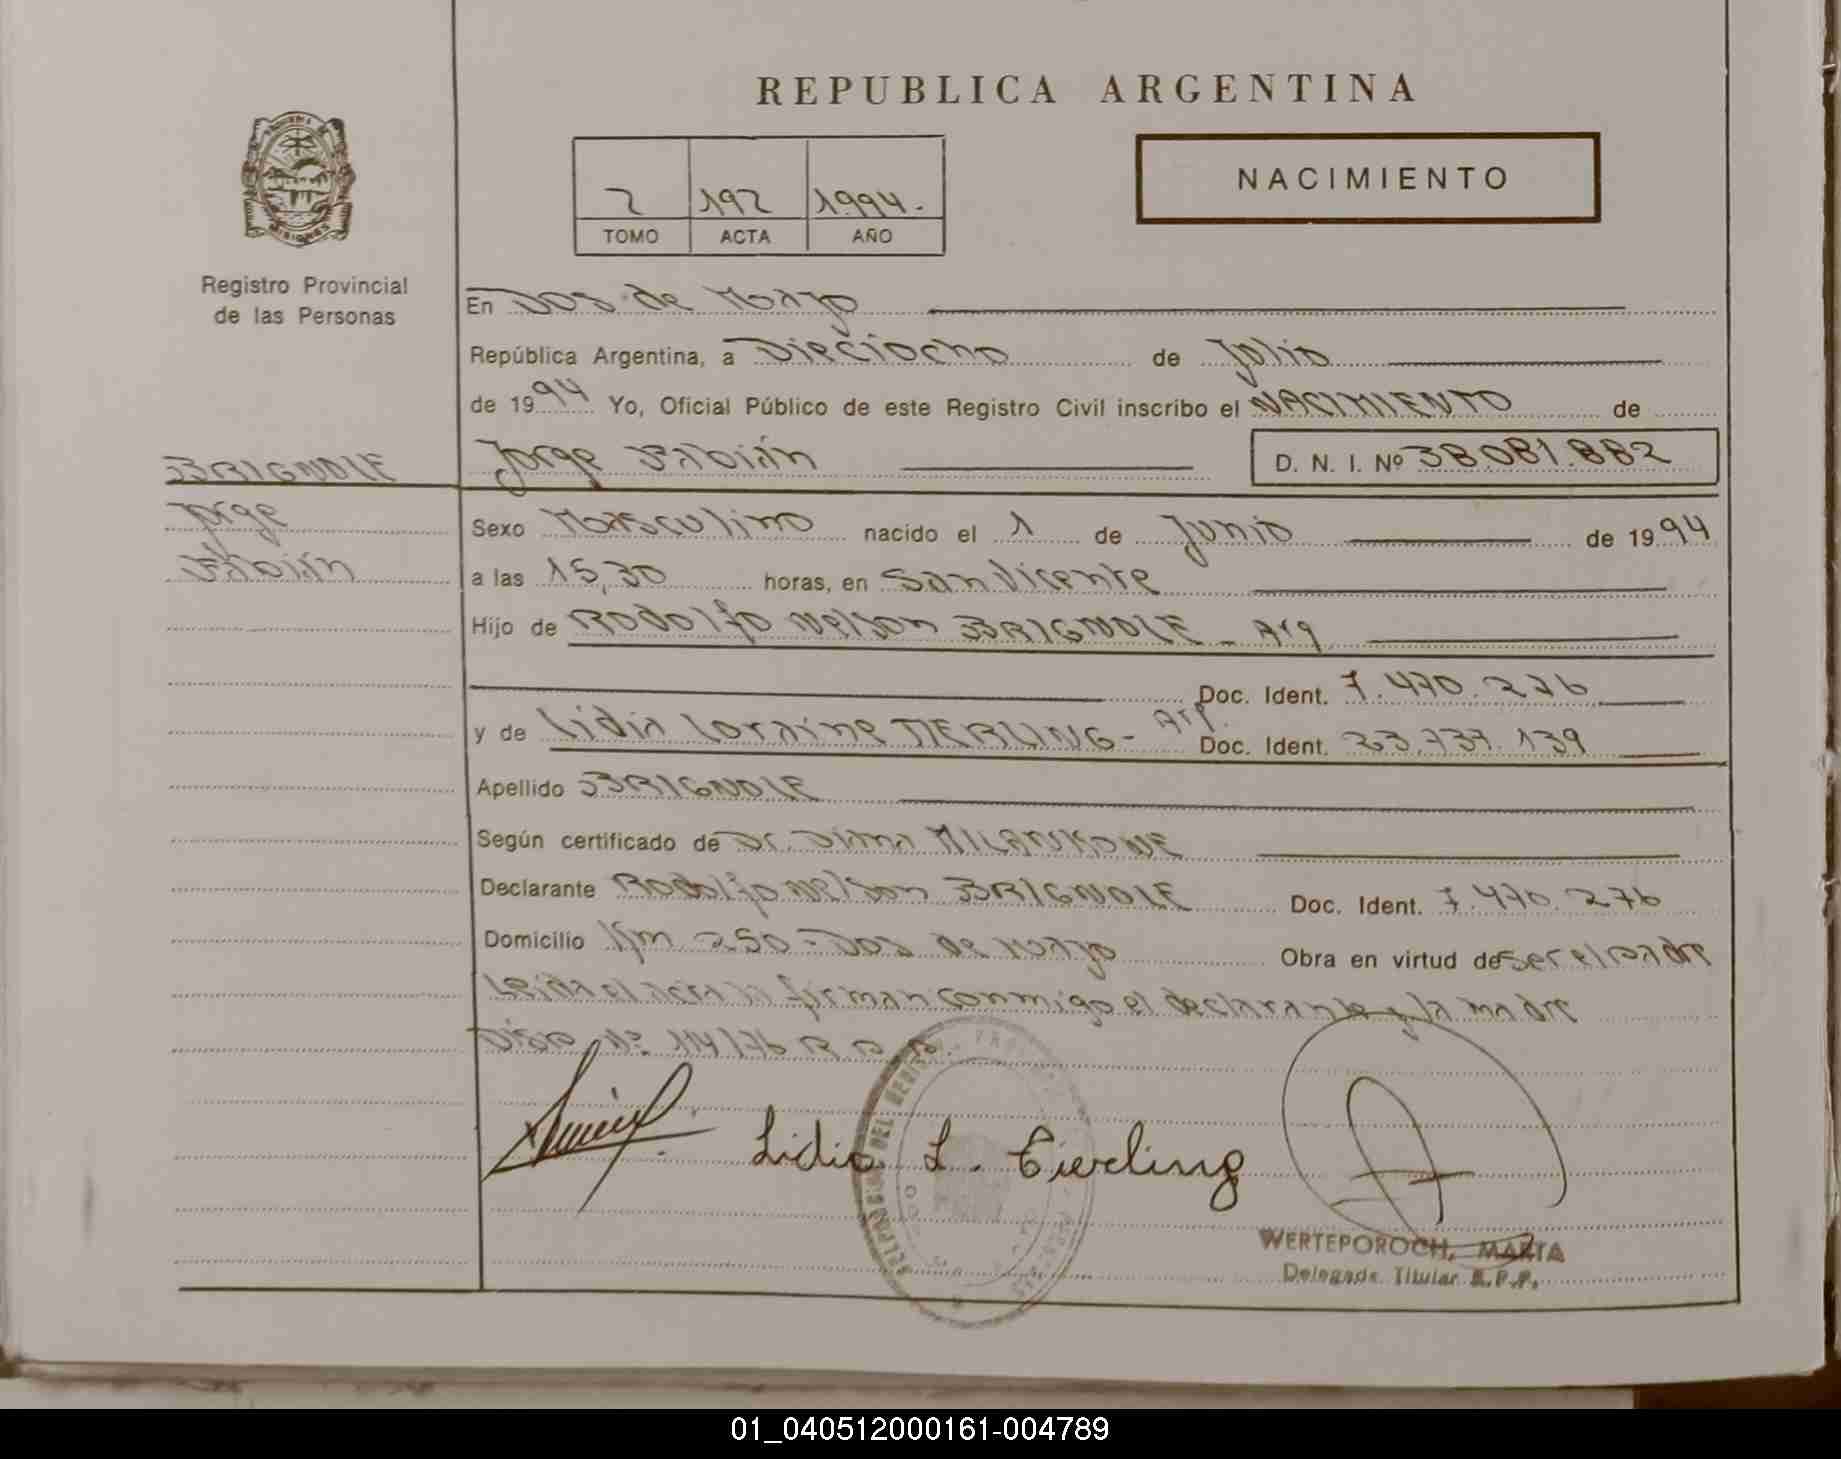 REPUBLICA ARGENTINA
NACIMIENTO
2 192 1994.
TOMO ACTA AÑO
Registro Provincial
de las Personas
En Dos de Mayo
República Argentina, a Dieciocho de Julio
de 1994 Yo, Oficial Público de este Registro Civil inscribo el NACIMIENTO de
BRIGNOLE
Jorge Fabián D. N. I. Nº 38.081.882
Jorge
Fabián
Sexo Masculino nacido el 1 de Junio de 1994
a las 15,30 horas, en San Vicente
Hijo de Rodolfo Nelson BRIGNOLE - Arg
Doc. Ident. 7.470.276
y de Lidia Loraine TIERLING - Arg. Doc. Ident. 23.737.139
Apellido BRIGNOLE
Según certificado de Dr. Diana
Declarante Rodolfo Nelson BRIGNOLE Doc. Ident. 7.470.276
Domicilio Km 250 - Dos de Mayo Obra en virtud de ser el padre
Leida el acta la firman conmigo el declarante y la madre
Disp Nº 114/76 R.P.P.
Lidia L. Tierling
WERTEPOROCH, MARTA
Delegada Titular R.P.P.
01_040512000161-004789